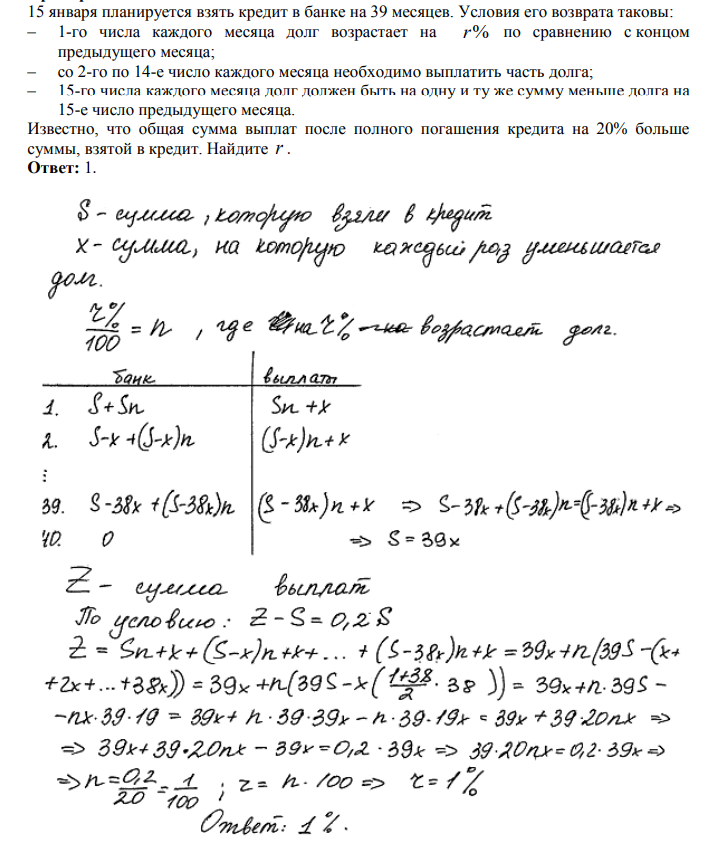 15 января планируется взять кредит в банке на 39 месяцев. Условия его возврата таковы:
– 1-го числа каждого месяца долг возрастает на r% по сравнению с концом
предыдущего месяца;
– со 2-го по 14-е число каждого месяца необходимо выплатить часть долга;
– 15-го числа каждого месяца долг должен быть на одну и ту же сумму меньше долга на
15-е число предыдущего месяца.
Известно, что общая сумма выплат после полного погашения кредита на 20% больше
суммы, взятой в кредит. Найдите r .
Ответ: 1.
S - сумма, которую взяли в кредит
x - сумма, на которую каждый раз уменьшается
долг.
r%/100 = n , где на r% возрастает долг.
банк выплаты
1. S+Sn Sn+x
2. S-x+(S-x)n (S-x)n+x
⋮
39. S-38x+(S-38x)n (S-38x)n+x ⇒ S-38x+(S-38x)n=(S-38x)n+x ⇒
40. 0 ⇒ S=39x
Z - сумма выплат
По условию: Z-S=0,2S
Z = Sn+x+(S-x)n+x+...+(S-38x)n+x = 39x+n(39S-(x+
+2x+...+38x)) = 39x+n(39S-x(1+38/2 · 38)) = 39x+n·39S-
-nx·39·19 = 39x+n·39·39x-n·39·19x = 39x+39·20nx ⇒
⇒ 39x+39·20nx-39x=0,2·39x ⇒ 39·20nx=0,2·39x ⇒
⇒ n=0,2/20=1/100 ; r=n·100 ⇒ r=1%
Ответ: 1%.